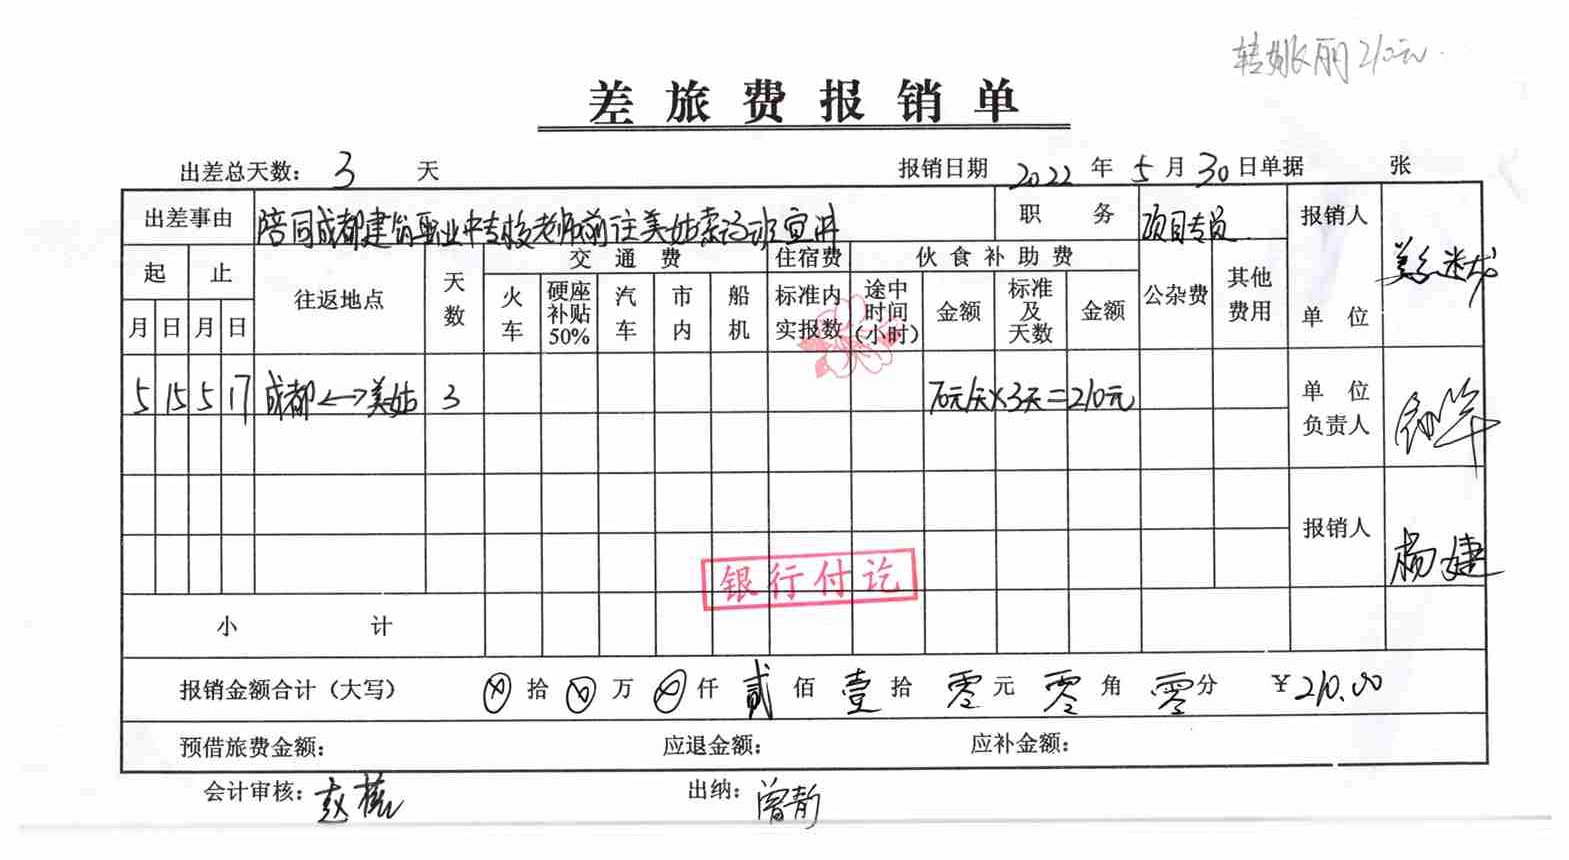 转姚丽210元.
差旅费报销单
出差总天数: 3 天 报销日期 2022 年 5 月 30 日单据 张
出差事由 陪同成都建筑职业中专校老师前往美姑索玛班宣讲 职务 项目专员 报销人
起 止 往返地点 天数 交通费 住宿费 伙食补助费 公杂费 其他费用
月 日 月 日 火车 硬座补贴50% 汽车 市内 船机 标准内实报数 途中时间(小时) 金额 标准及天数 金额 单位
5 15 5 17 成都<->美姑 3 70元/天×3天=210元 单位负责人
报销人 杨婕
银行付讫
小计
报销金额合计(大写) ⊗ 拾 ⊗ 万 ⊗ 仟 贰 佰 壹 拾 零 元 零 角 零 分 ¥210.00
预借旅费金额: 应退金额: 应补金额:
会计审核: 赵 出纳: 曾静